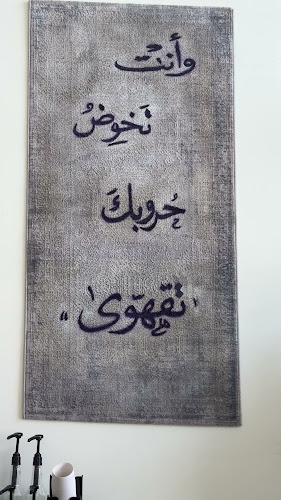 وأنت
تَخوضُ
حُروبكَ
"تقهوَى"